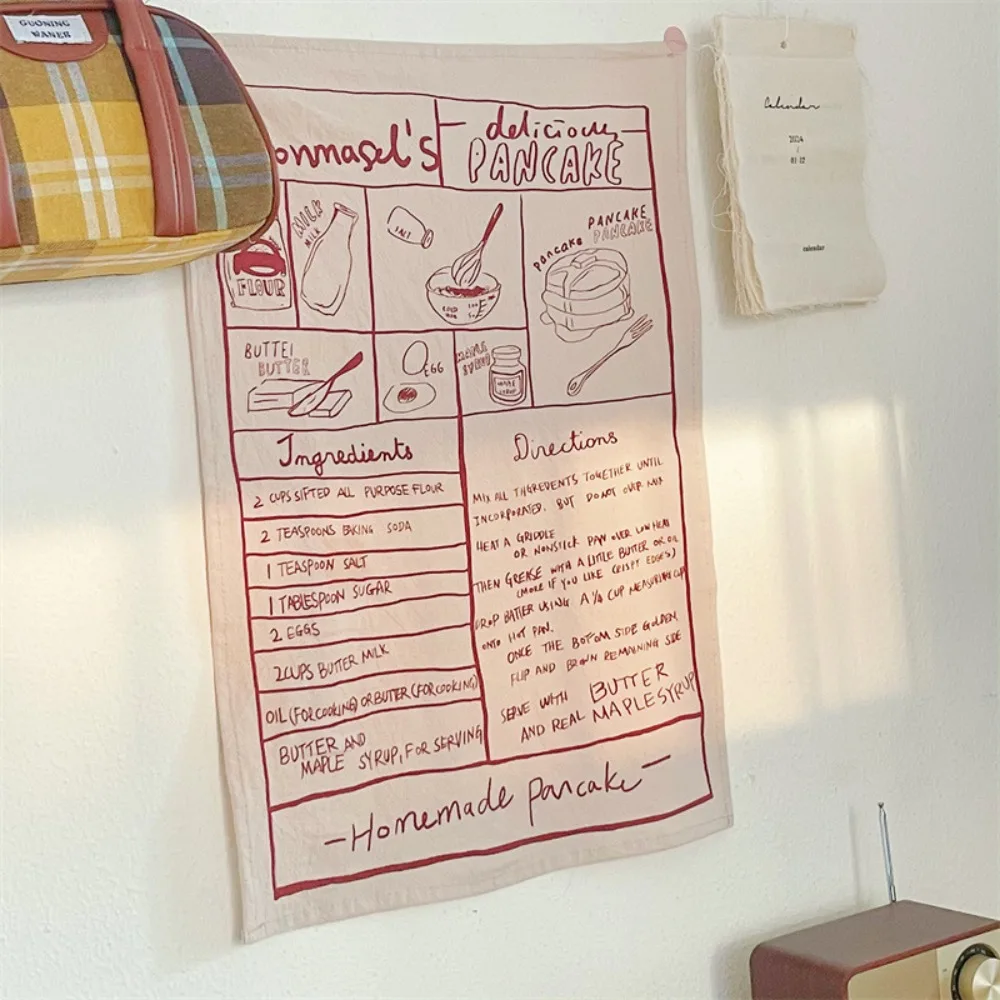 GUONING
WANER
onmasel's
delicious
PANCAKE
MILK
MILK
SALT
PANCAKE
PANCAKE
pancake
FLOUR
BUTTE
BUTTER
EGG
MAPLE
SYRUP
MAPLE
SYRUP
Ingredients
2 CUPS SIFTED ALL PURPOSE FLOUR
2 TEASPOONS BAKING SODA
1 TEASPOON SALT
1 TABLESPOON SUGAR
2 EGGS
2 CUPS BUTTER MILK
OIL (FOR COOKING) OR BUTTER (FOR COOKING)
BUTTER AND
MAPLE SYRUP, FOR SERVING
Directions
MIX ALL INGREDENTS TOGETHER UNTIL
INCORPORATED. BUT DO NOT OVER MIX
HEAT A GRIDDLE
OR NONSTICK PAN OVER LOW HEAT
THEN GREASE WITH A LITTLE BUTTER OR OIL
(MORE IF YOU LIKE CRISPY EDGES)
DROP BATTER USING A 1/4 CUP MEASURING CUP
ONTO HOT PAN.
ONCE THE BOTTOM SIDE GOLDEN,
FLIP AND BROWN REMAINING SIDE
SERVE WITH BUTTER
AND REAL MAPLE SYRUP
-Homemade pancake-
Calendar
2024
/
01-12
calendar